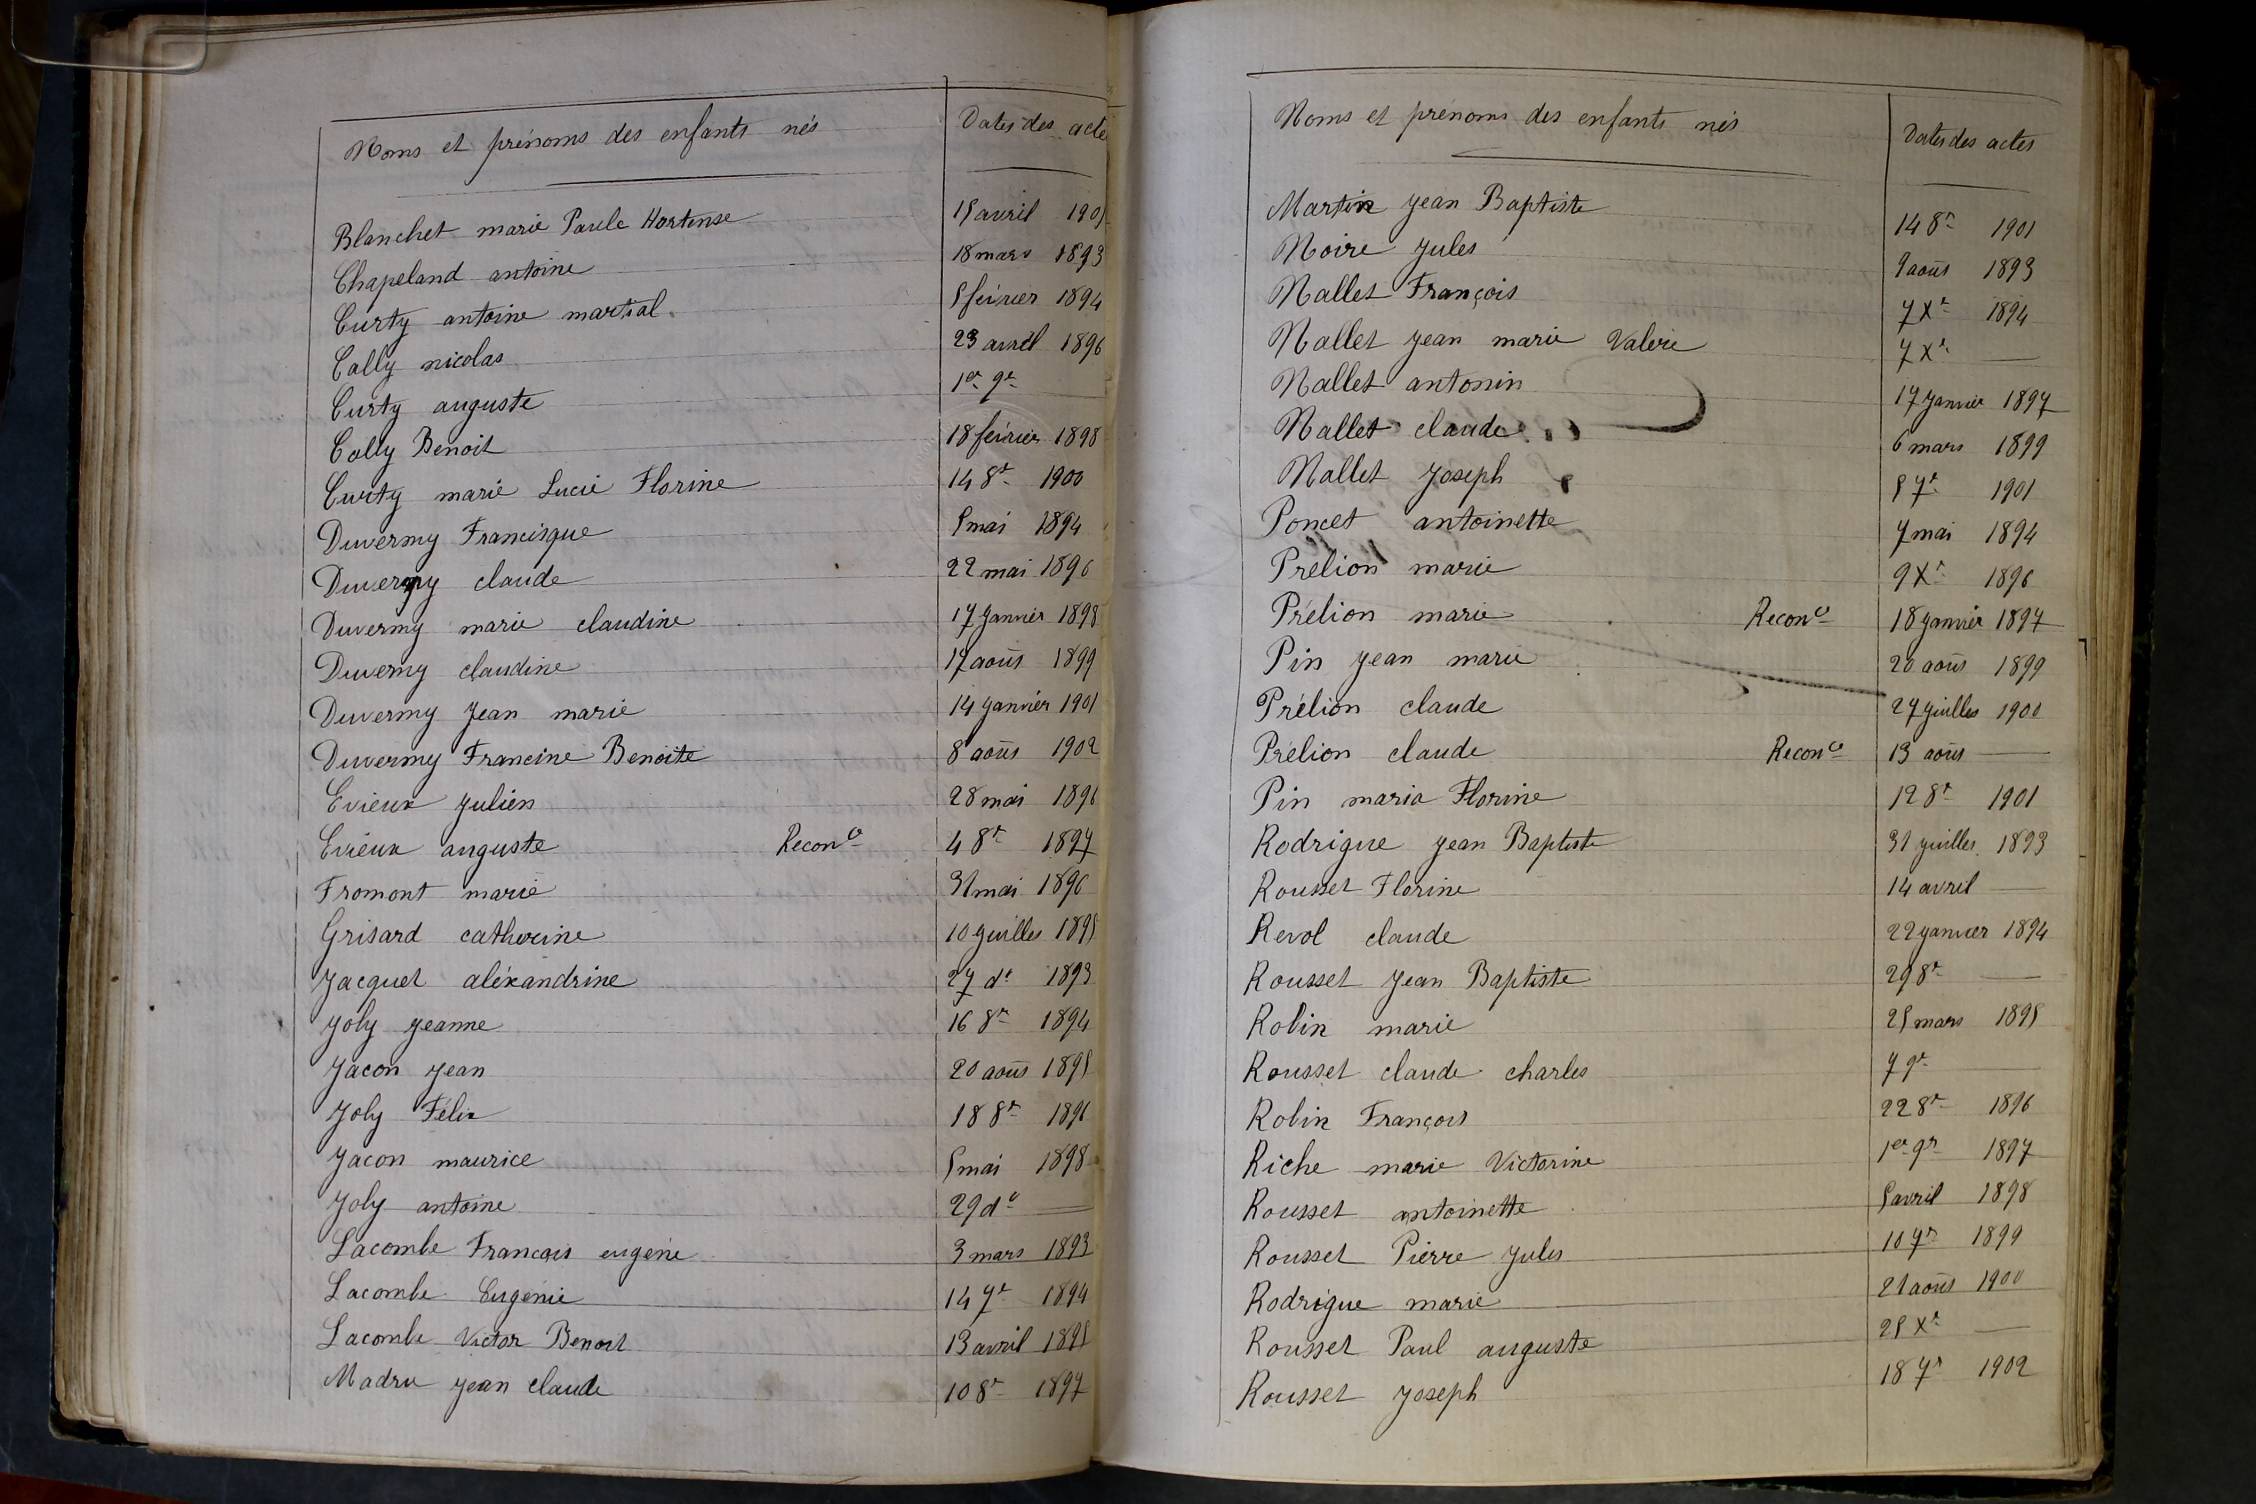 Noms et prénoms des enfants nés Dates des acte
Blanchet marie Paule Hortense 15 avril 1901
Chapeland antoine 18 mars 1893
Curty antoine martial. 5 février 1894
Colly nicolas 23 avril 1896
Curty auguste 1er 9r —
Colly Benoit 18 février 1898
Curty marie Lucie Florine 14 8r 1900
Duvermy Francisque 5 mai 1894
Duvermy claude 22 mai 1896
Duvermy marie claudine 17 Janvier 1898
Duvermy claudine 17 août 1899
Duvermy Jean marie 14 Janvier 1901
Duvermy Francine Benoite 8 août 1902
Evieux Julien 28 mai 1896
Evieux auguste Reconce 4 8r 1897
Fromont marie 31 mai 1896
Grisard catherine 10 Juillet 1895
Jacquet aléxandrine 27 do 1893
Joly Jeanne 16 8r 1894
Jacon Jean 20 août 1895
Joly Félix 18 8r 1896
Jacon maurice 5 mai 1898
Joly antoine 29 do —
Lacombe François eugène 3 mars 1893
Lacombe Eugénie 14 7r 1894
Lacombe Victor Benoit 13 avril 1895
Madru Jean claude 10 8r 1897
Noms et prénoms des enfants nés Dates des actes
Martin Jean Baptiste 14 8r 1901
Noire Jules 9 août 1893
Nallet François 7 Xr 1894
Nallet Jean marie Valerie 7 Xr —
Nallet antonin 17 Janvier 1897
Nallet claude 6 mars 1899
Nallet Joseph 5 7r 1901
Poncet antoinette 7 mai 1894
Prélion marie 9 Xr 1896
Prélion marie Reconce 18 Janvier 1897
Pin Jean marie 20 août 1899
Prélion claude 27 Juillet 1900
Prélion claude Reconce 13 août —
Pin maria Florine 12 8r 1901
Rodrigue Jean Baptiste 31 Juillet 1893
Rousset Florine 14 avril —
Revol claude 22 Janvier 1894
Rousset Jean Baptiste 29 8r —
Robin marie 25 mars 1895
Rousset claude charles 7 9r —
Robin François 22 8r 1896
Riche marie Victorine 1er 9r 1897
Rousset antoinette 5 avril 1898
Rousset Pierre Jules 10 7r 1899
Rodrigue marie 21 août 1900
Rousset Paul auguste 25 Xr —
Rousset Joseph 18 7r 1902